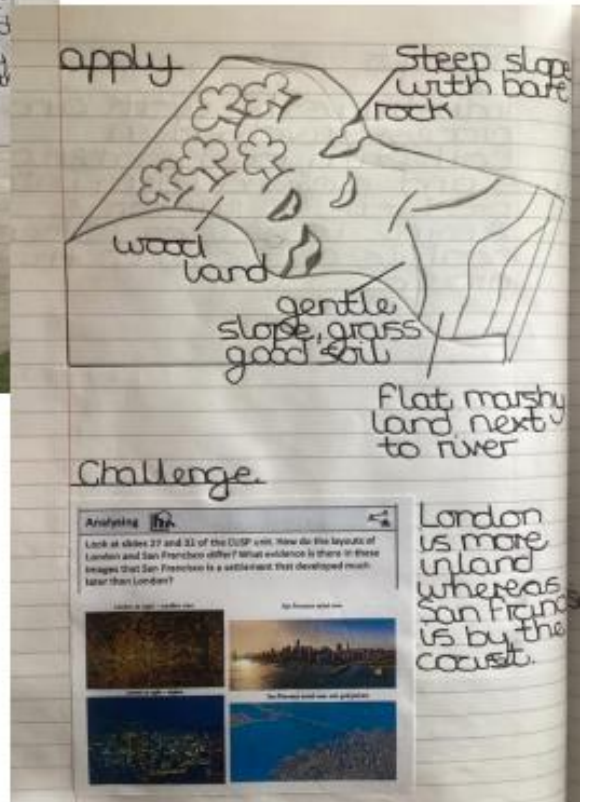 apply
Steep slope
with bare
rock
wood
land
gentle
slope, grass
good soil
flat marshy
land next
to river
Challenge.
Analysing
Look at slides 27 and 31 of the CUSP unit. How do the layouts of
London and San Francisco differ? What evidence is there in these
images that San Francisco is a settlement that developed much
later than London?
London
is more
inland
whereas
San Francis
is by the
coast.